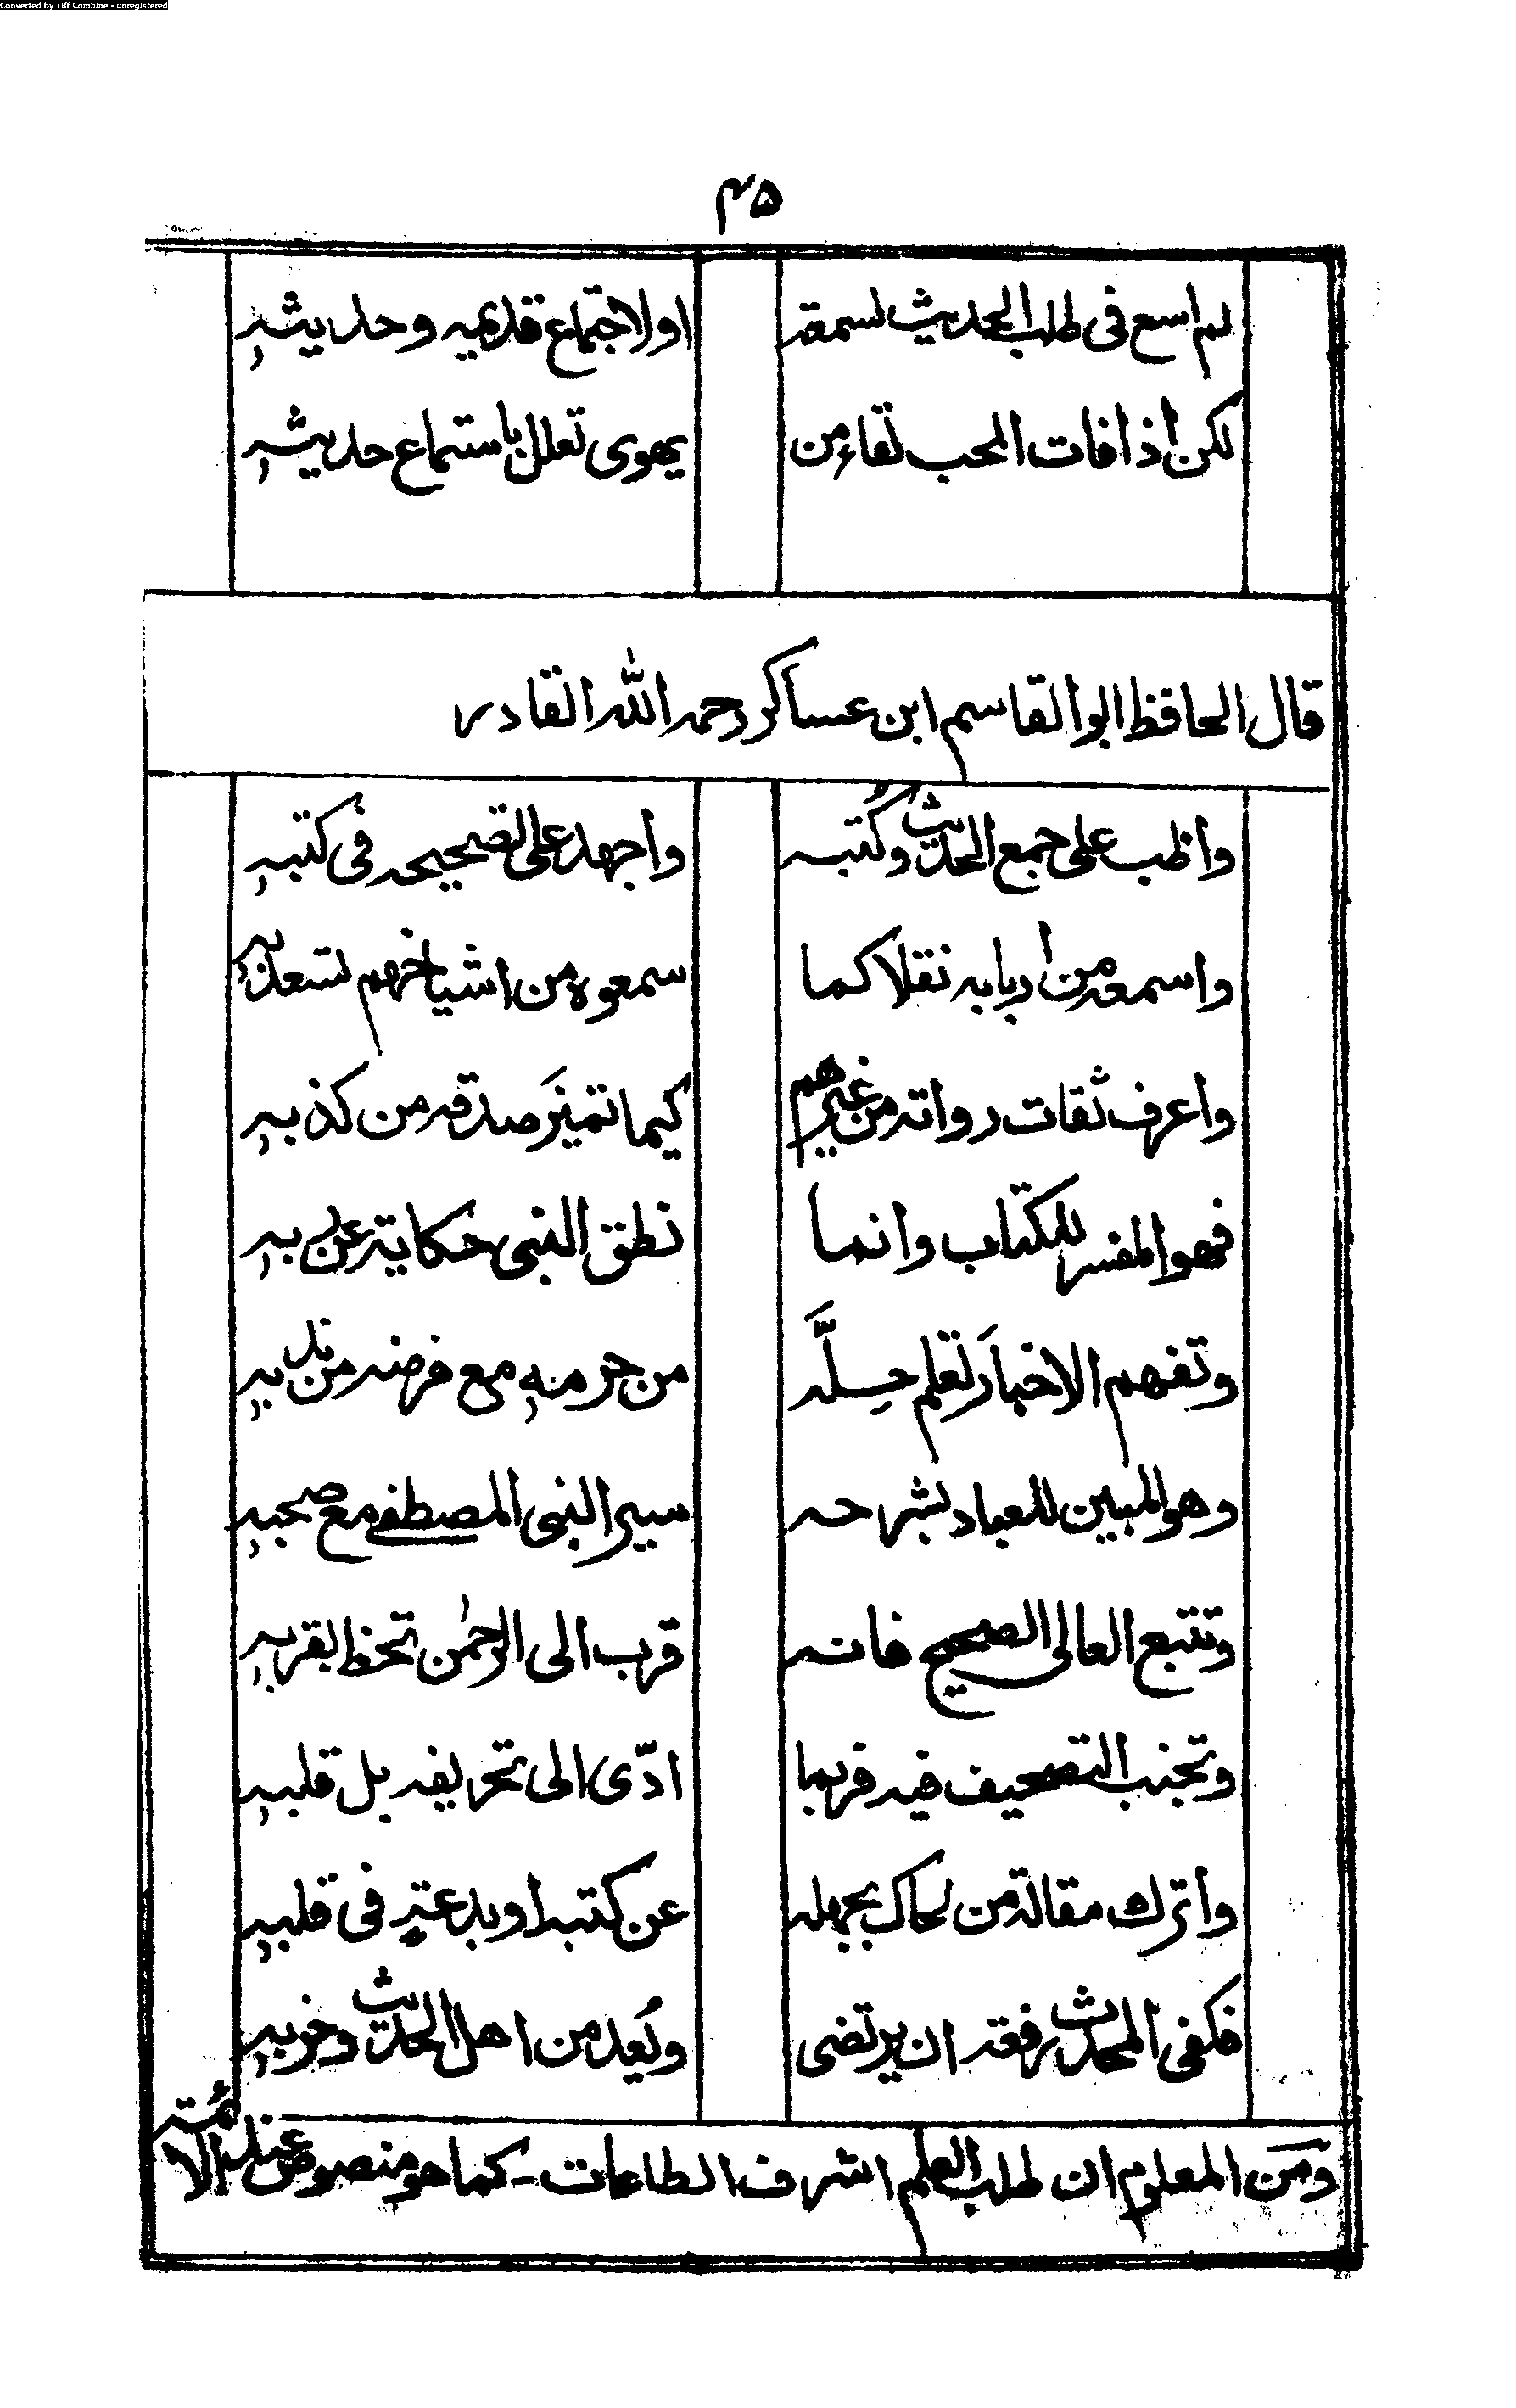 Converted by Tiff Combine - unregistered
۴۵
لم اسع فى طلب الحديث لسمعة اولاجتماع قديمه وحديثه
لكن اذا فات المحب لقاء من يهوى تعلل باستماع حديثه
قال الحافظ ابو القاسم ابن عساكر رحمه الله القادر
واظب على جمع الحديث وكتبه واجهد على تصحيحه فى كتبه
واسمعه من اربابه نقلا كما سمعوه من اشياخهم تسعد به
واعرف ثقات رواته من غيرهم كيما تميز صدقه من كذبه
فهو المفسر للكتاب وانما نطق النبى حكاية عن ربه
وتفهم الاخبار تعلم حله من حرمه مع فرضه من ندبه
وهو المبين للعباد بشرحه سير النبى المصطفى مع صحبه
وتتبع العالى الصحيح فانه قرب الى الرحمٰن تحظ بقربه
وتجنب التصحيف فيه فربما ادّى الى تحريفه بل قلبه
واترك مقالة من لحاك بجهله عن كتبه او بدعة فى قلبه
فكفى المحدث رفعة ان يرتضى ويُعد من اهل الحديث وحزبه
ومن المعلوم ان طلب العلم اشرف الطاعات - كما هو منصوص عند الائمة